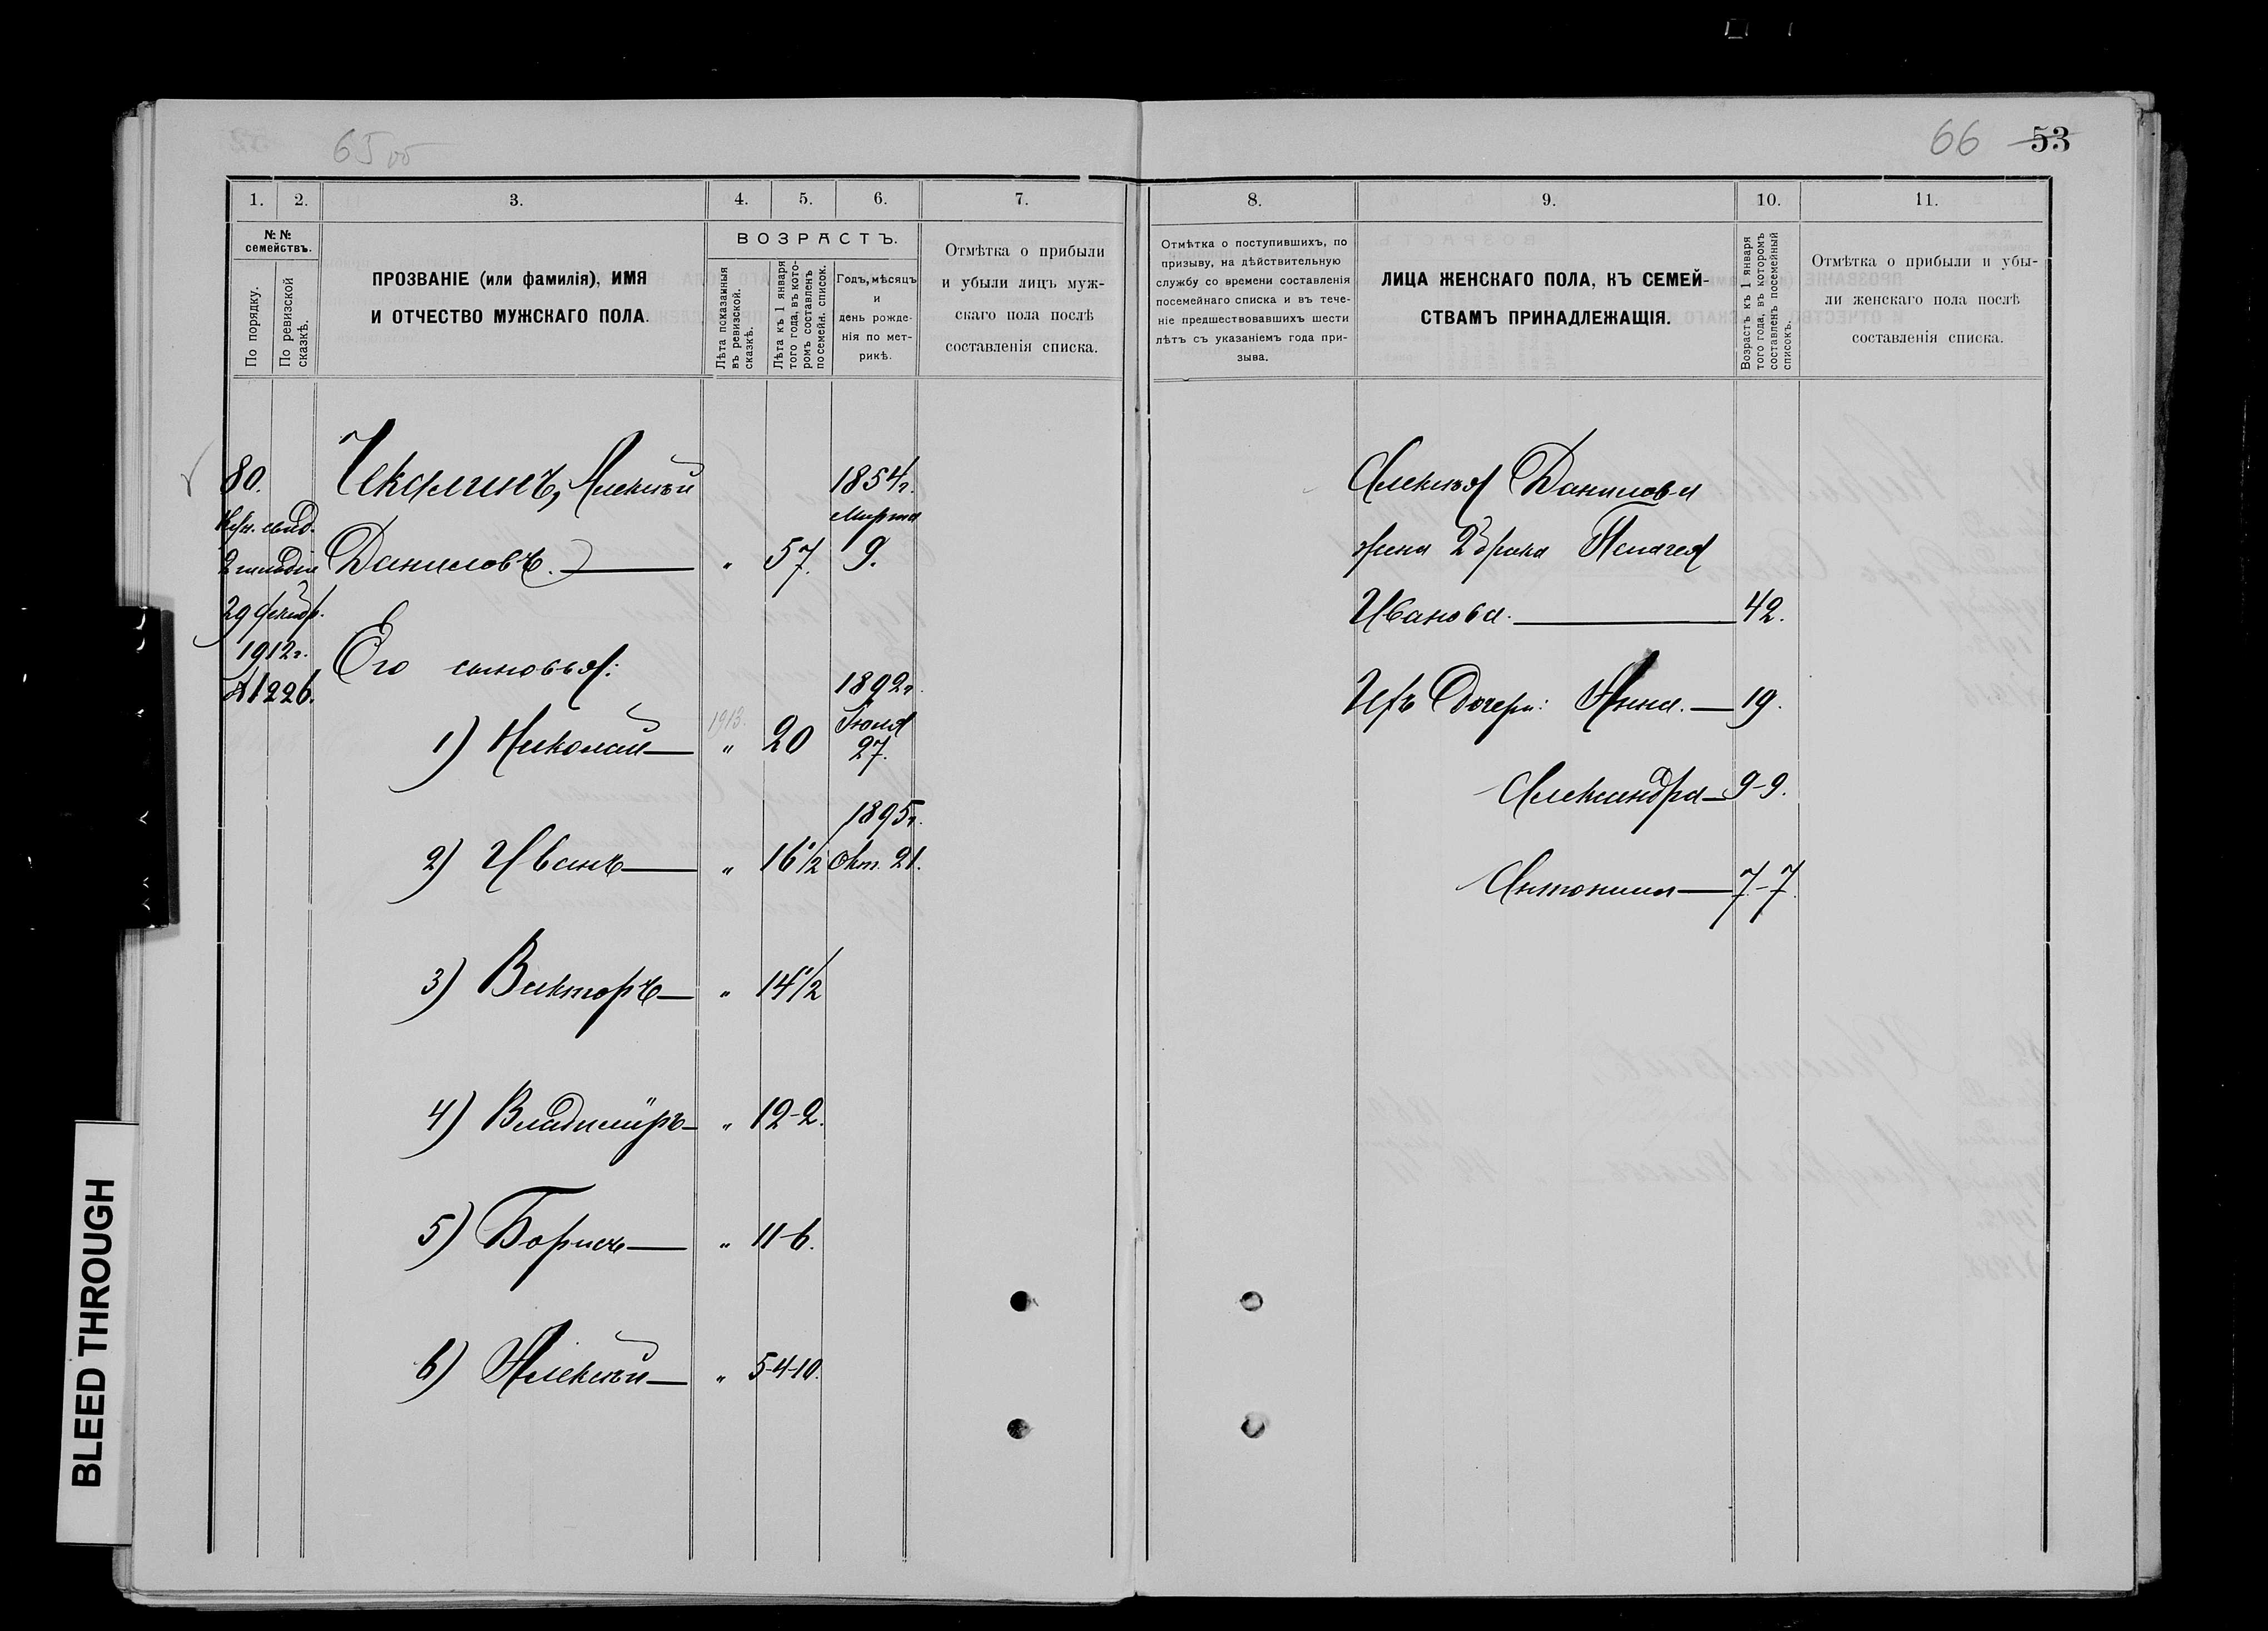 65 об
66 53
1. 2. 3. 4. 5. 6. 7.
№ №
семействъ.
По порядку.
По ревизской
сказкѣ.
ПРОЗВАНІЕ (или фамилія), ИМЯ
И ОТЧЕСТВО МУЖСКАГО ПОЛА.
ВОЗРАСТЪ.
Лѣта показанныя
въ ревизской.
сказкѣ.
Лѣта къ 1 января
того года, въ кото-
ромъ составленъ
посемейн. список.
Годъ, мѣсяцъ
и
день рожде-
нія по мет-
рикѣ.
Отмѣтка о прибыли
и убыли лицъ муж-
скаго пола послѣ
составленія списка.
80. Чекалинъ, Алексѣй 1854г.
Куп. свид. Марта
2 гильдіи Даниловъ. " 57. 9.
29 декабр.
1912г. Его сыновья:
№ 1226. 1892г.
1) Николай 1913. " 20 Іюля
27.
1895г.
2) Иванъ " 16 1/2 Окт. 21.
3) Викторъ " 14 1/2
4) Владиміръ " 12-2.
5) Борисъ " 11-6.
6) Алексѣй " 5-4-10.
8. 9. 10. 11.
Отмѣтка о поступившихъ, по
призыву, на дѣйствительную
службу со времени составленія
посемейнаго списка и въ тече-
ніе предшествовавшихъ шести
лѣтъ съ указаніемъ года при-
зыва.
ЛИЦА ЖЕНСКАГО ПОЛА, КЪ СЕМЕЙ-
СТВАМЪ ПРИНАДЛЕЖАЩІЯ.
Возрастъ къ 1 января
того года, въ которомъ
составленъ посемейный
списокъ.
Отмѣтка о прибыли и убы-
ли женскаго пола послѣ
составленія списка.
Алексѣя Данилова
жена 2 брака Пелагея
Иванова. 42.
Ихъ дочери: Анна. 19.
Александра 9-9.
Антонина 7-7.
BLEED THROUGH